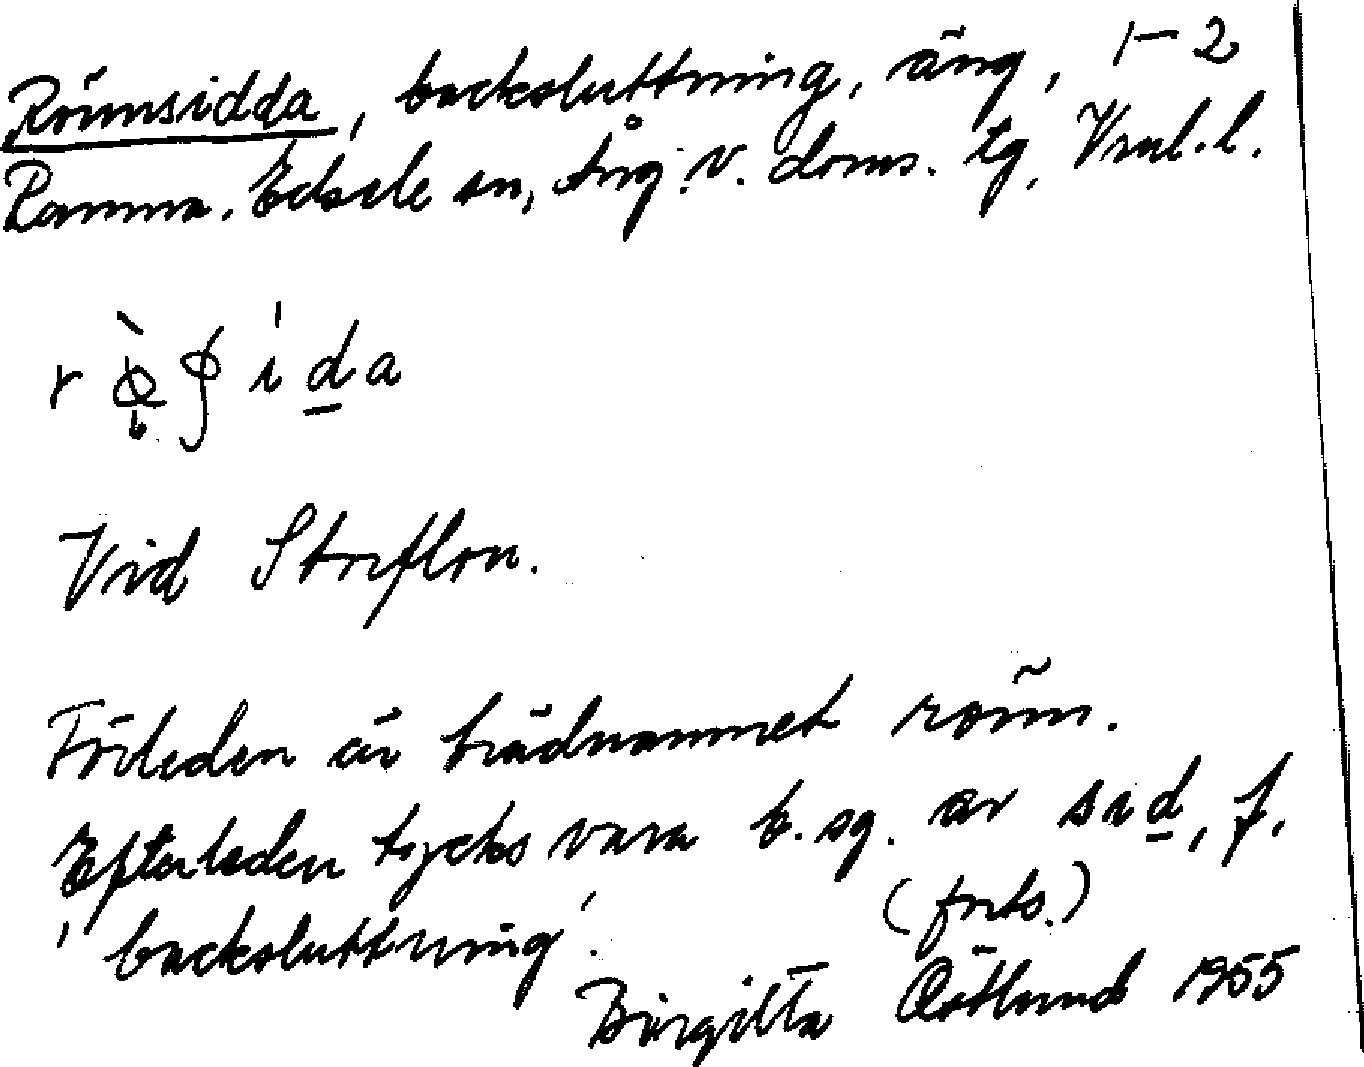 Rönnsidda, backsluttning, äng, 1–2
Ramna. Edsele sn, Ång. v. doms. tg, Vml. l.
Vid Storflon.
Förleden är trädnamnet rönn.
Efterleden tycks vara b. sg. av sid, f.
'backsluttning'. (forts.)
Birgitta Östlund 1955